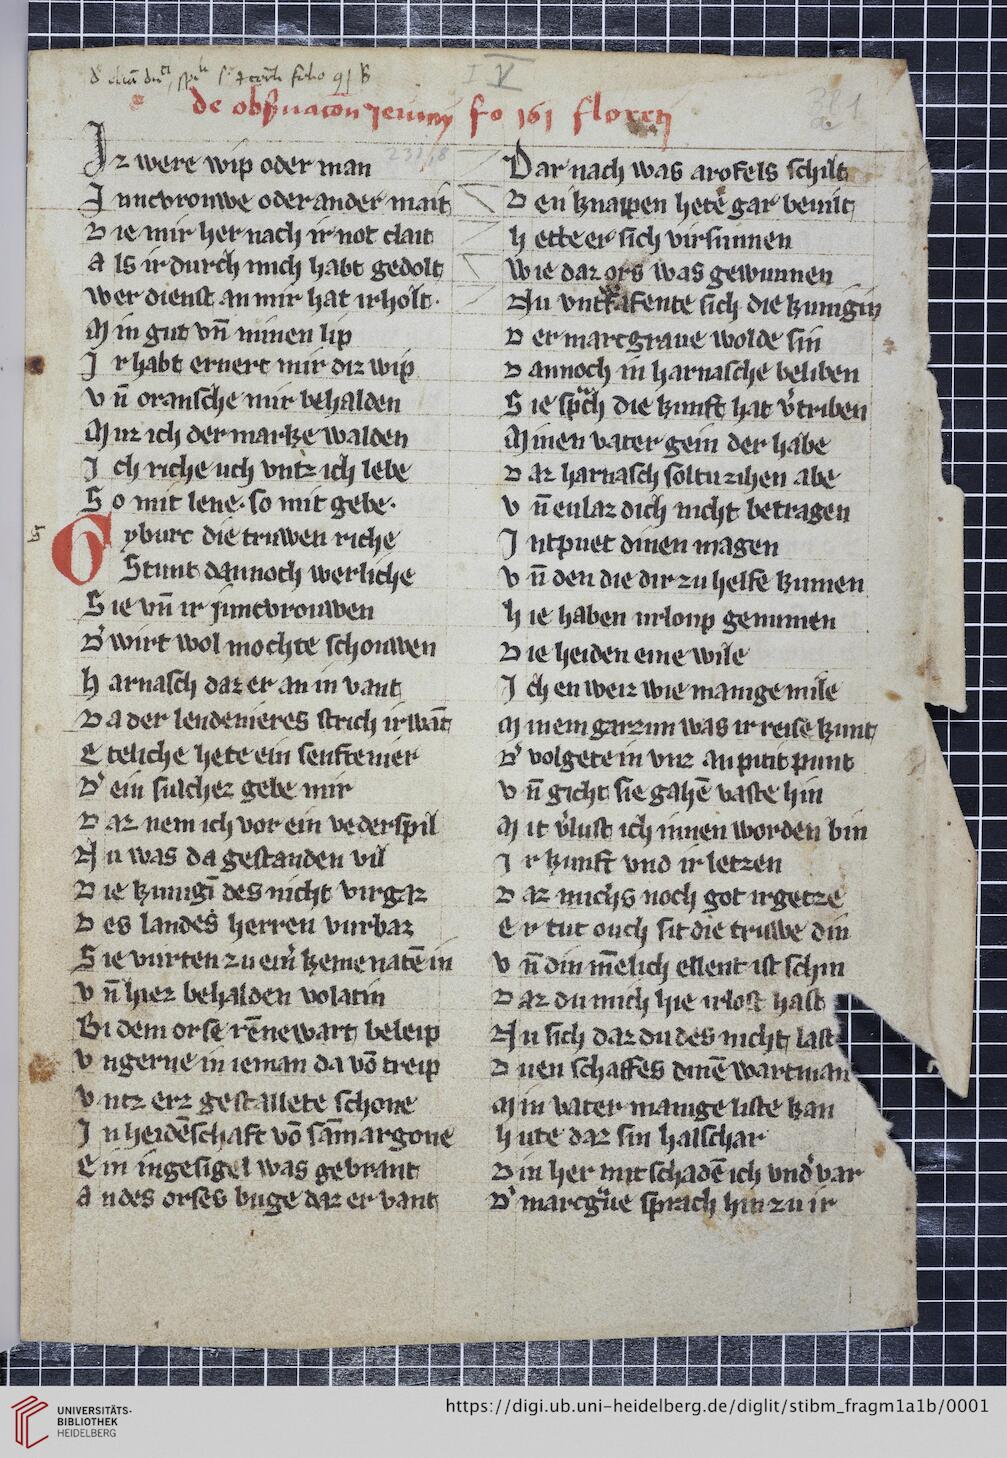 de obseruacon Jeiunij fo 161 floreti
I z were wip oder man
J uncvrouwe oder ander mait
D ie mir her nach ir not clait
A ls ir durch mich habt gedolt
Wer dienst an mir hat irholt.
M in gut vn̄ minen lip
I r habt ernert mir diz wip
V n̄ oransche mir behalden
M uz ich der marke walden
I ch riche uch vntz ich lebe
S o mit lene. so mit gebe.
G yburc die truwen riche
Stunt dannoch werliche
S ie vn̄ ir juncvrouwen
D' wirt wol mochte schouwen
H arnasch daz er an in vant
D a der lendenieres strich irwāt
E teliche hete ein senftenier
D' ein sulchez gebe mir
D az nem ich vor ein vederspil
N u was da gestanden vil
D ie kunigī des nicht virgaz
D es landes herren vurbaz
S ie vurten zu eim' kemenatē in
V n̄ hiez behalden volatin
B i dem orse rēnewart beleip
V ngerne in ieman da vō treip
V ntz erz gestallete schone
I n heidēschaft vō sāmargone
E in ingesigel was gebrant
A n des orses buge daz er vant
D ar nach was arofels schilt
D en knappen hetē gar bevilt
H ette er sich virsunnen
W ie daz ors was gewunnen
N u sich die kunigin
D er marcgraue wolde sin
D annoch in harnasche beliben
S ie sp̄ch die kunft hat v'triben
M inen vater gein der habe
D az harnasch soltu zihen abe
V n̄ enlaz dich nicht betragen
I ntpuet dinen magen
V n̄ den die dir zu helfe kumen
H ie haben urloup genumen
D ie heiden eine wile
I ch en weiz wie manige mile
M inem garzun was ir reise kunt
D' volgete in vnz an pitit punt
V n̄ gicht sie gahē vaste hin
M it v'lust ich innen worden bin
I r kunft vnd ir letzen
D az michs noch got irgetze
E r tut ouch sit die truwe din
V n̄ din mēlich ellent ist schin
D az du mich hie irlost hast
N u sich daz du des nicht last
D uen schaffes dinē wartman
M in vater manige liste kan
H ute daz sin halschar
D in her mit schadē ich vnd' var
D' marcg̈ue sprach hin zu ir
UNIVERSITÄTS-
BIBLIOTHEK
HEIDELBERG
https://digi.ub.uni-heidelberg.de/diglit/stibm_fragm1a1b/0001